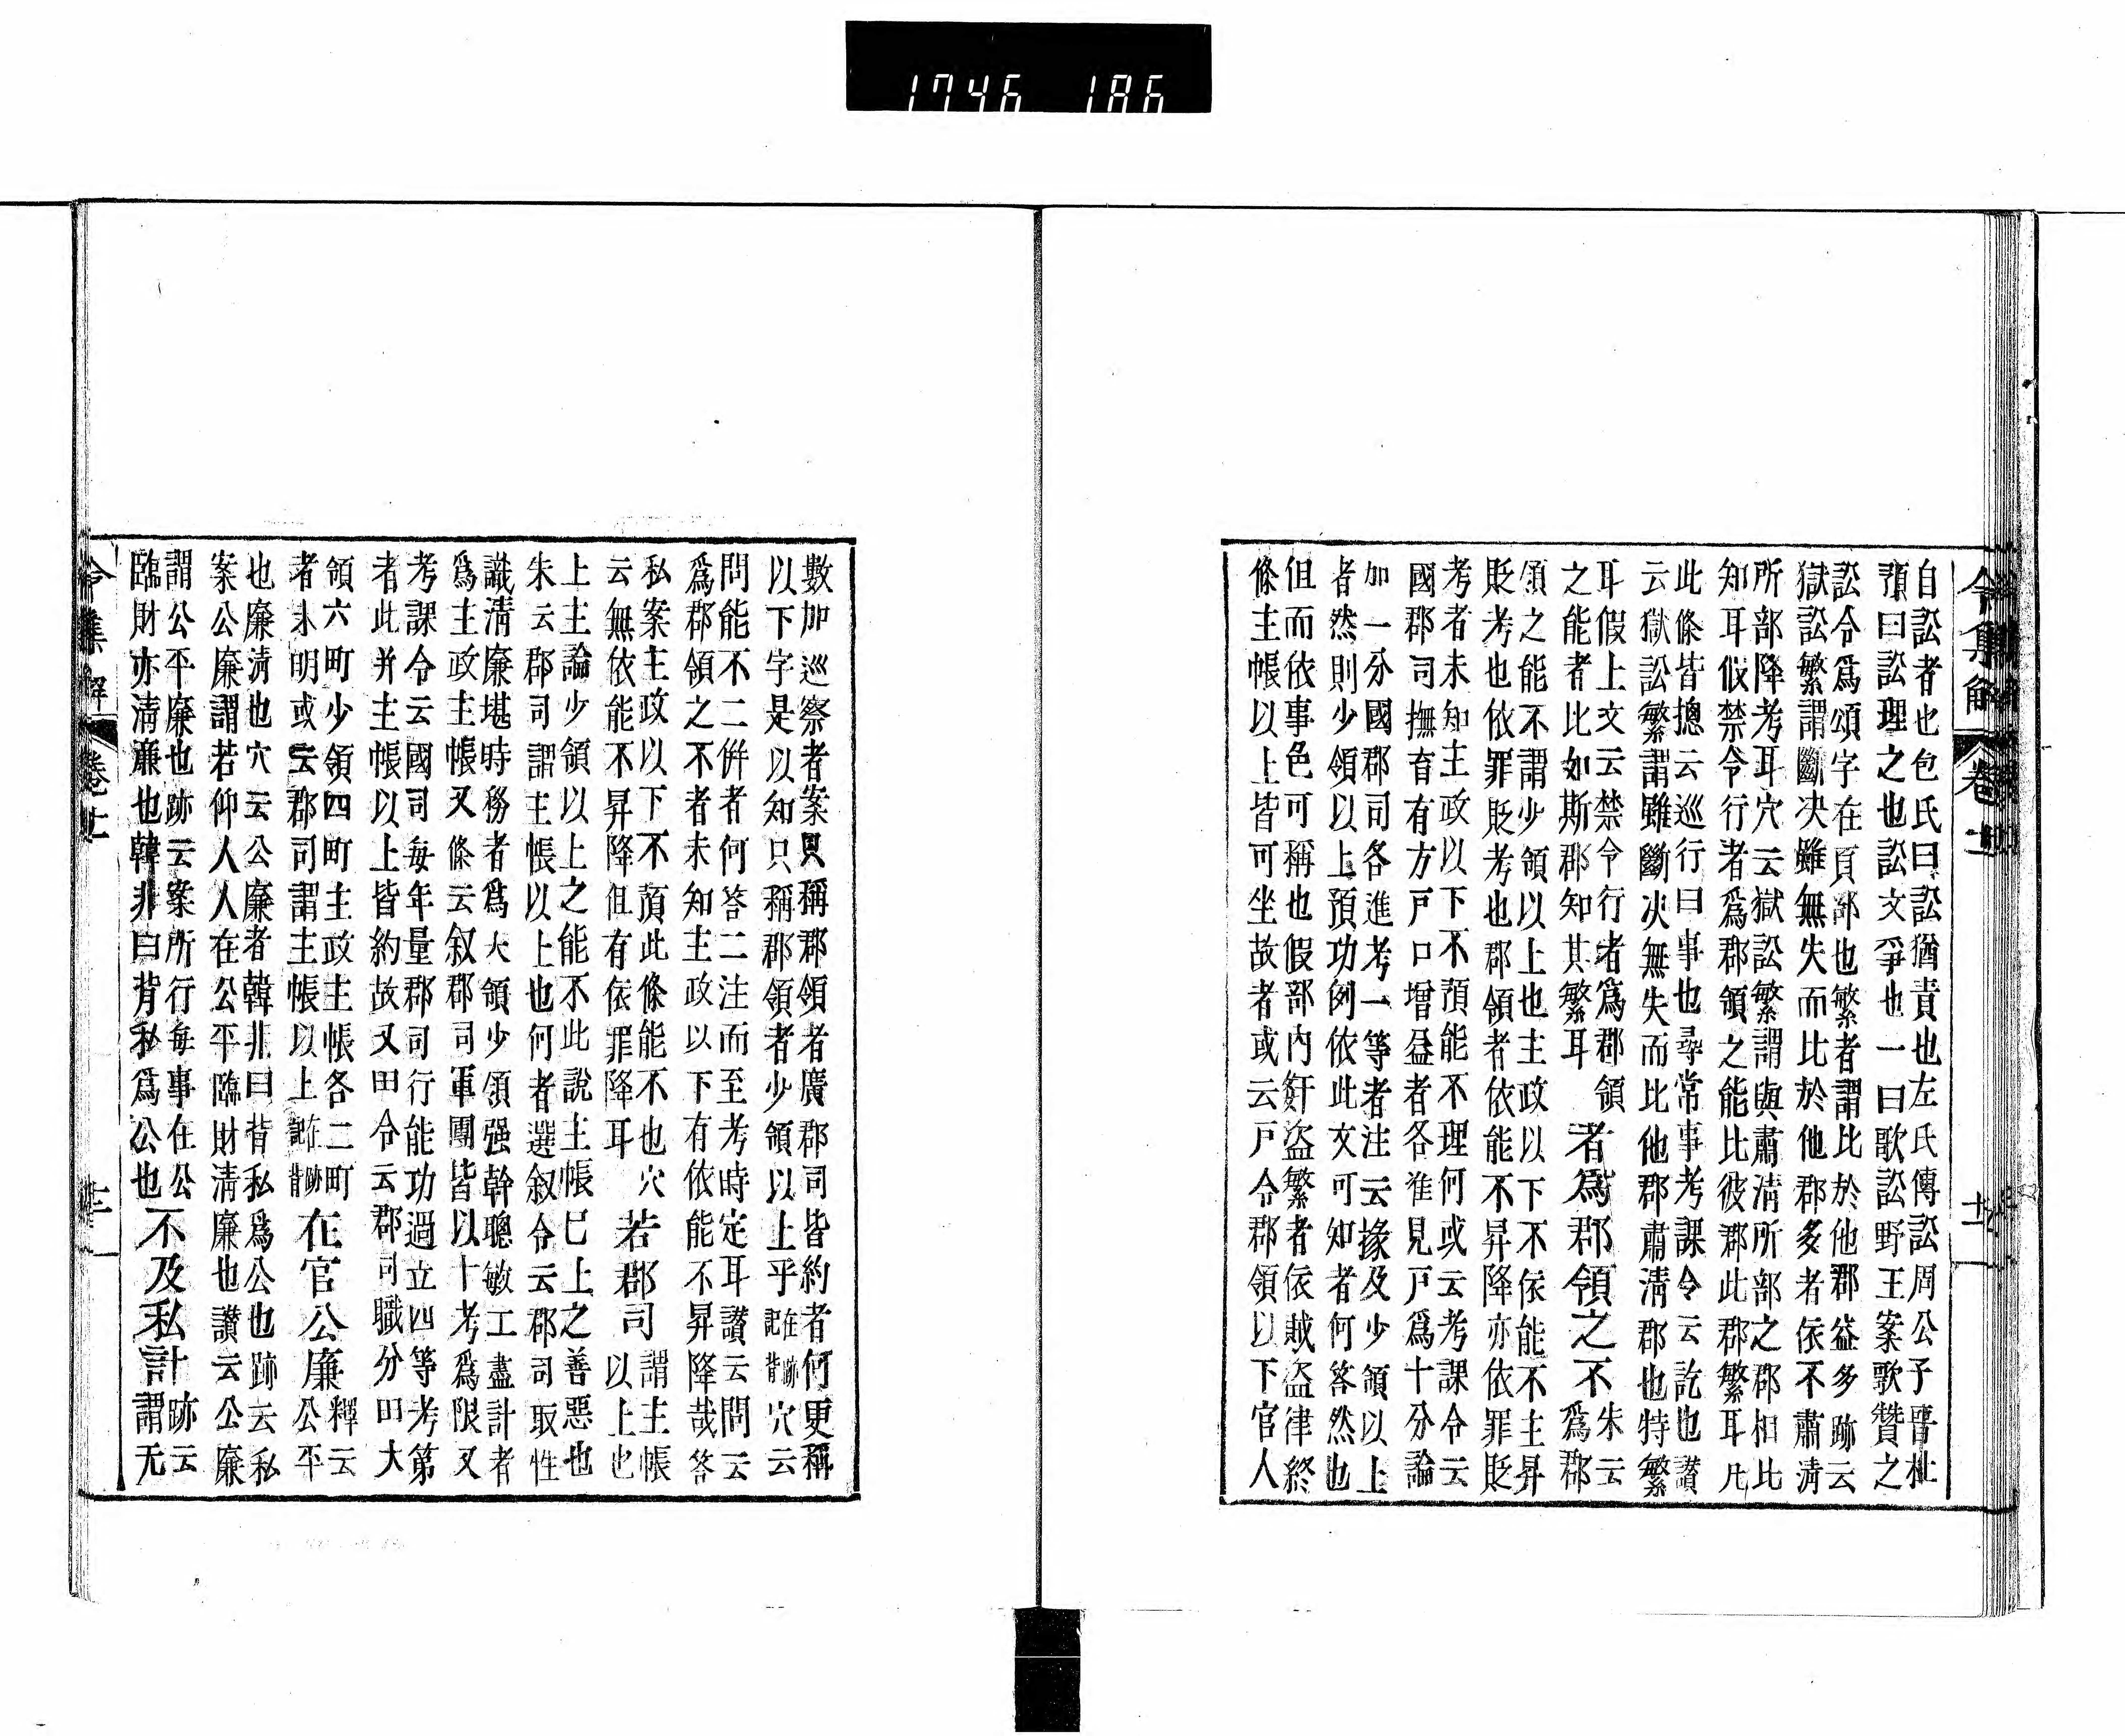 1746 186
令集解 卷十一
自訟者也包氏曰訟猶責也左氏傳訟周公子晉杜
預曰訟理之也訟文爭也一曰歌訟野王案歌贊之
訟令爲頌字在頁部也繁者謂比於他郡益多跡云
獄訟繁謂斷决雖無失而比於他郡多者依不肅淸
所部降考耳穴云獄訟繁謂與肅淸所部之郡相比
知耳假禁令行者爲郡領之能比彼郡此郡繁耳凡
此條皆摠云巡行曰事也尋常事考課令云訖也讃
云獄訟繁謂雖斷决無失而比他郡肅淸郡也特繁
耳假上文云禁令行者爲郡領
之能者比如斯郡知其繁耳
者爲郡領之不
朱云
爲郡
領之能不謂少領以上也主政以下不依能不主昇
貶考也依罪貶考也郡領者依能不昇降亦依罪貶
考者未知主政以下不預能不理何或云考課令云
國郡司撫育有方戸口增益者各准見戸爲十分論
加一分國郡司各進考一等者注云掾及少領以上
者然則少領以上預功例依此文可知者何答然也
但而依事色可稱也假部内奸盗繁者依賊盗律終
條主帳以上皆可坐故者或云戸令郡領以下官人
數加巡察者案只稱郡領者廣郡司皆約者何更稱
以下字是以知只稱郡領者少領以上乎在跡記背穴云
問能不二併者何答二注而至考時定耳讃云問云
爲郡領之不者未知主政以下有依能不昇降哉答
私案主政以下不預此條能不也穴
云無依能不昇降但有依罪降耳
若郡司
謂主帳
以上也
上主論少領以上之能不此說主帳巳上之善惡也
朱云郡司謂主帳以上也何者選叙令云郡司取性
識淸廉堪時務者爲大領少領强幹聰敏工書計者
爲主政主帳又條云叙郡司軍團皆以十考爲限又
考課令云國司每年量郡司行能功過立四等考第
者此并主帳以上皆約故又田令云郡司職分田大
領六町少領四町主政主帳各二町
者未明或云郡司謂主帳以上在跡記背
在官公廉
釋云
公平
也廉淸也穴云公廉者韓非曰背私爲公也跡云私
案公廉謂若仰人人在公平臨財淸廉也讃云公廉
謂公平廉也跡云案所行每事在公
臨財亦淸廉也韓非曰背私爲公也
不及私計
跡云
謂无
令集解 卷十一 十二